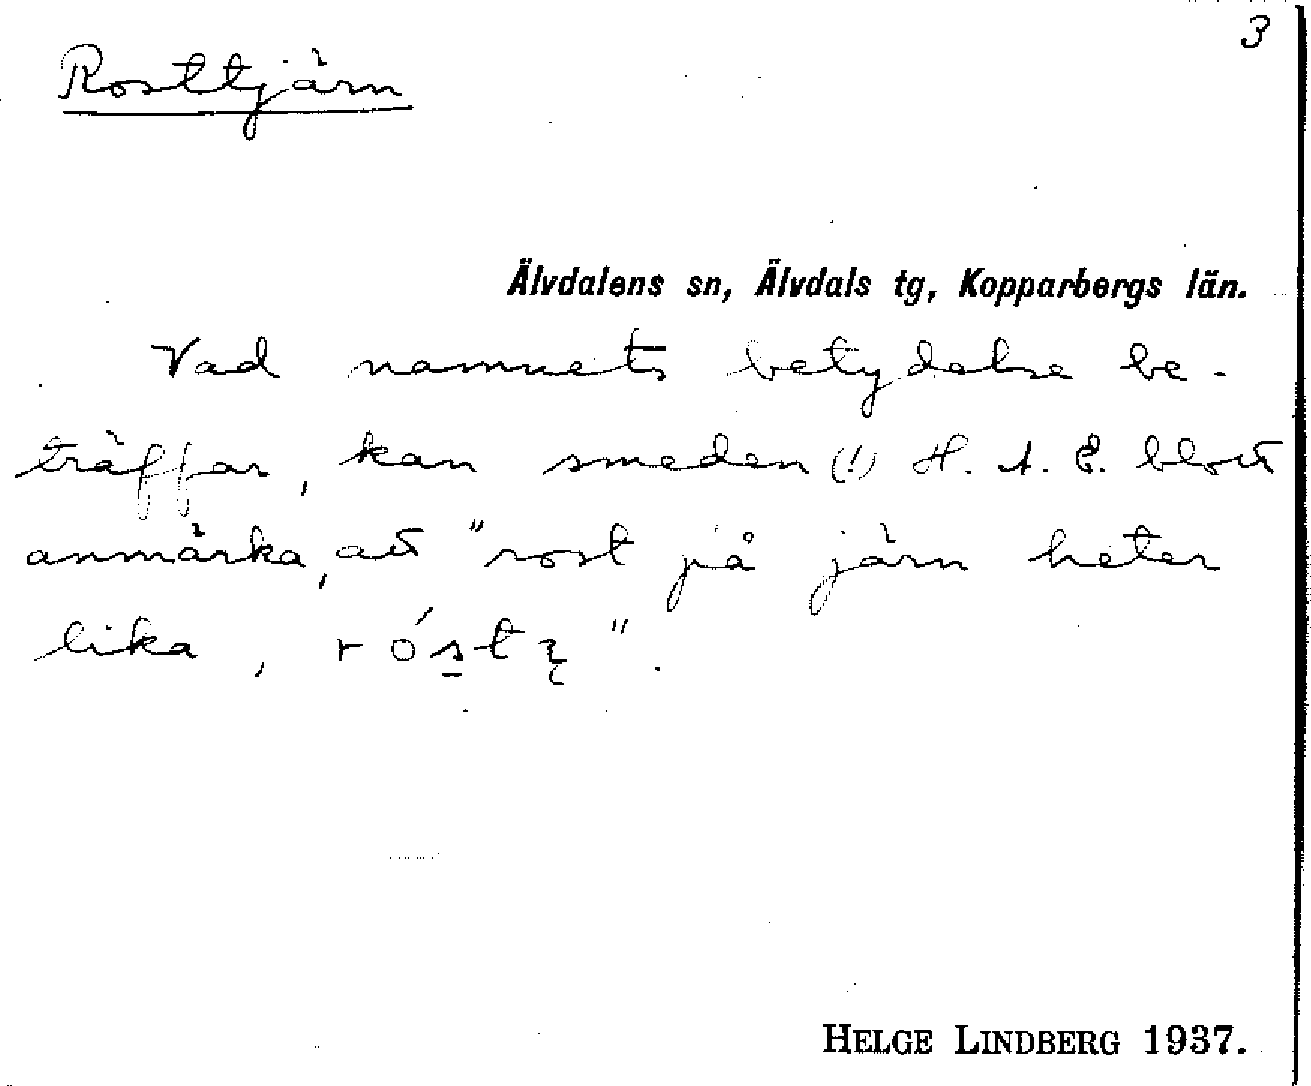 3
Rosttjärn
Älvdalens sn, Älvdals tg, Kopparbergs län.
Vad namnets betydelse be-
träffar, kan smeden (!) H. A. E. blott
anmärka, att "rost på järn heter
lika,
HELGE LINDBERG 1937.